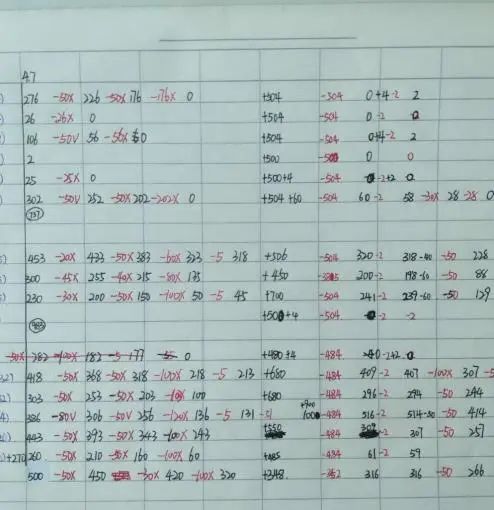 4.7
276 -50X 226 -50X 176 -176X 0 +504 -504 0+4-2 2
26 -26X 0 +504 -504 0-2 0
106 -50V 56 -56X 0 +504 -504 0+4-2 2
2 +500 0 0
25 -25X 0 +500+4 -504 -2+2 0
302 -50V 252 -50X 202 -202X 0 +504+60 -504 60-2 58 -30X 28 -28 0
737
453 -20X 433 -50X 383 -60X 323 -5 318 +506 -504 320-2 318-40 -50 228
300 -45X 255 -40X 215 -80X 135 +450 200-2 198-60 -50 88
230 -30X 200 -50X 150 -100X 50 -5 45 +700 -504 241-2 239-60 -50 129
+500+4 -504 -2 -2
-50X 282 -100X 182 -5 177 0 +480+4 -484 0-2+2 0
418 -50X 368 -50X 318 -100X 218 -5 213 +680 -484 409-2 407 -100X 307 -5
303 -50X 253 -50X 203 100 +680 -484 296-2 294 -50 244
386 -80V 306 -50V 256 -120X 136 -5 131 +900 1000 -484 516-2 514-50 -50 414
443 -50X 393 -50X 343 -100X 243 +550 -484 309-2 307 -50 257
+270 260 -50X 210 -50X 160 -100X 60 +485 -484 61-2 59
500 -50X 450 -30X 420 -100X 320 +348 -352 316 316 -50 266